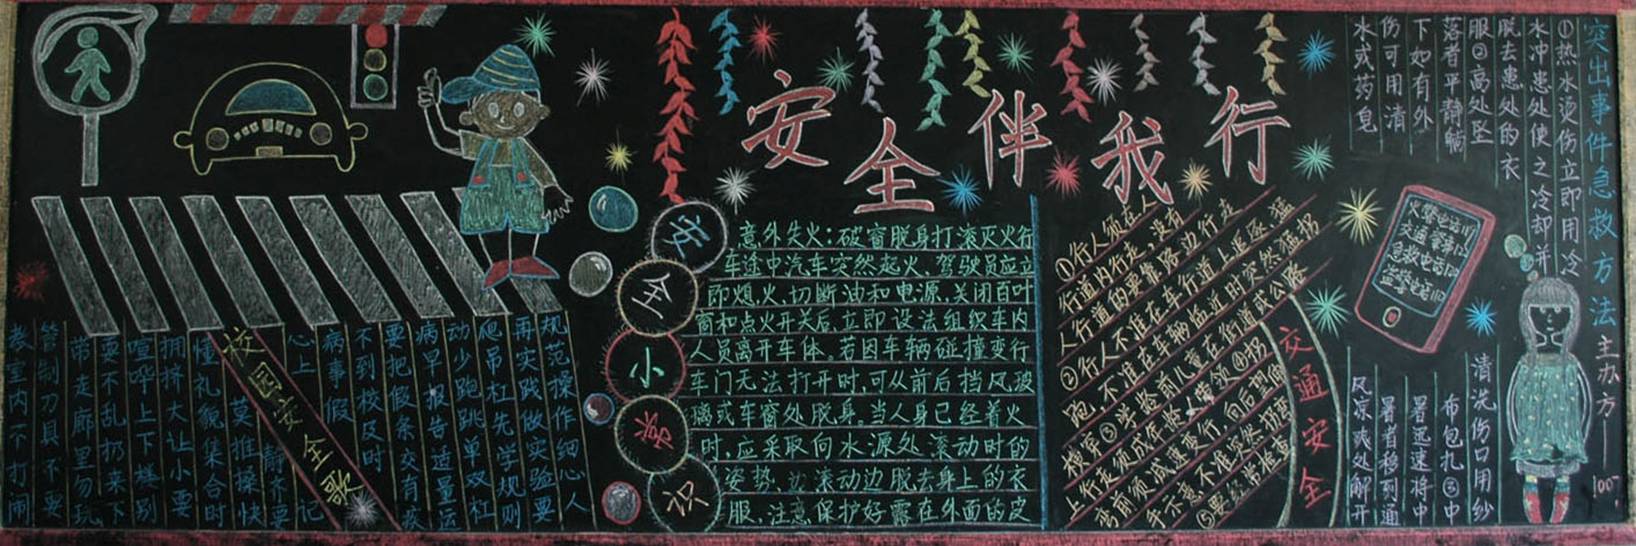 安全伴我行
安全小常识
意外失火：破窗脱身打滚灭火行
车途中汽车突然起火，驾驶员应立
即熄火、切断油和电源，关闭百叶
窗和点火开关后，立即设法组织车内
人员离开车体。若因车辆碰撞变行
车门无法打开时，可从前后挡风玻
璃或车窗处脱身。当人身已经着火
时，应采取向水源处滚动时的
姿势，边滚动边脱去身上的衣
服，注意保护好露在外面的皮
校园安全歌
规范操作细心人
再实践做实验要
爬吊杠先学规则
动少跑跳单双杠
病早报告适量运
要把假条交有疾
不到校及时
病事假
心上
静齐要记
莫推操快
懂礼貌集合时
拥挤大让小要
喧哗上下梯别
要不乱扔来下
带走廊里勿玩
管制刀具不要
教室内不打闹
交通安全
①行人须在人
行道内行走，没有
人行道的要靠路边行走
②行人不准在车行道上追逐、猛
跑，不准在车辆临近时突然猛拐
横穿③学龄前儿童在街道或公路
上行走须成年人带领④拐
弯前须减速变行，向后望伸
手示意不准突然拐弯
⑤要经常检查
突出事件急救方法
①热水烫伤立即用冷
水冲患处使之冷却并
脱去患处的衣
服②高处坠
落者平静躺
下如有外
伤可用清
水或药皂
清洗伤口用纱
布包扎③中
暑迅速将中
暑者移到通
风凉爽处解开
火警电话119
急救电话120
盗警电话110
主办方——